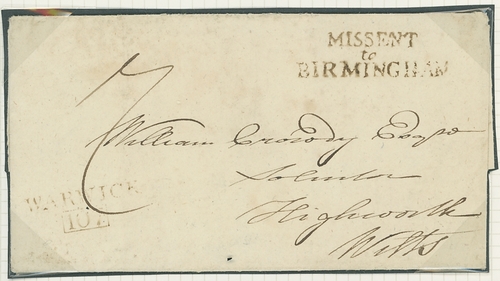 MISSENT
to
BIRMINGHAM
7
William Crowdy Esqre
Solicitor
Highworth
Wilts
WARWICK
102